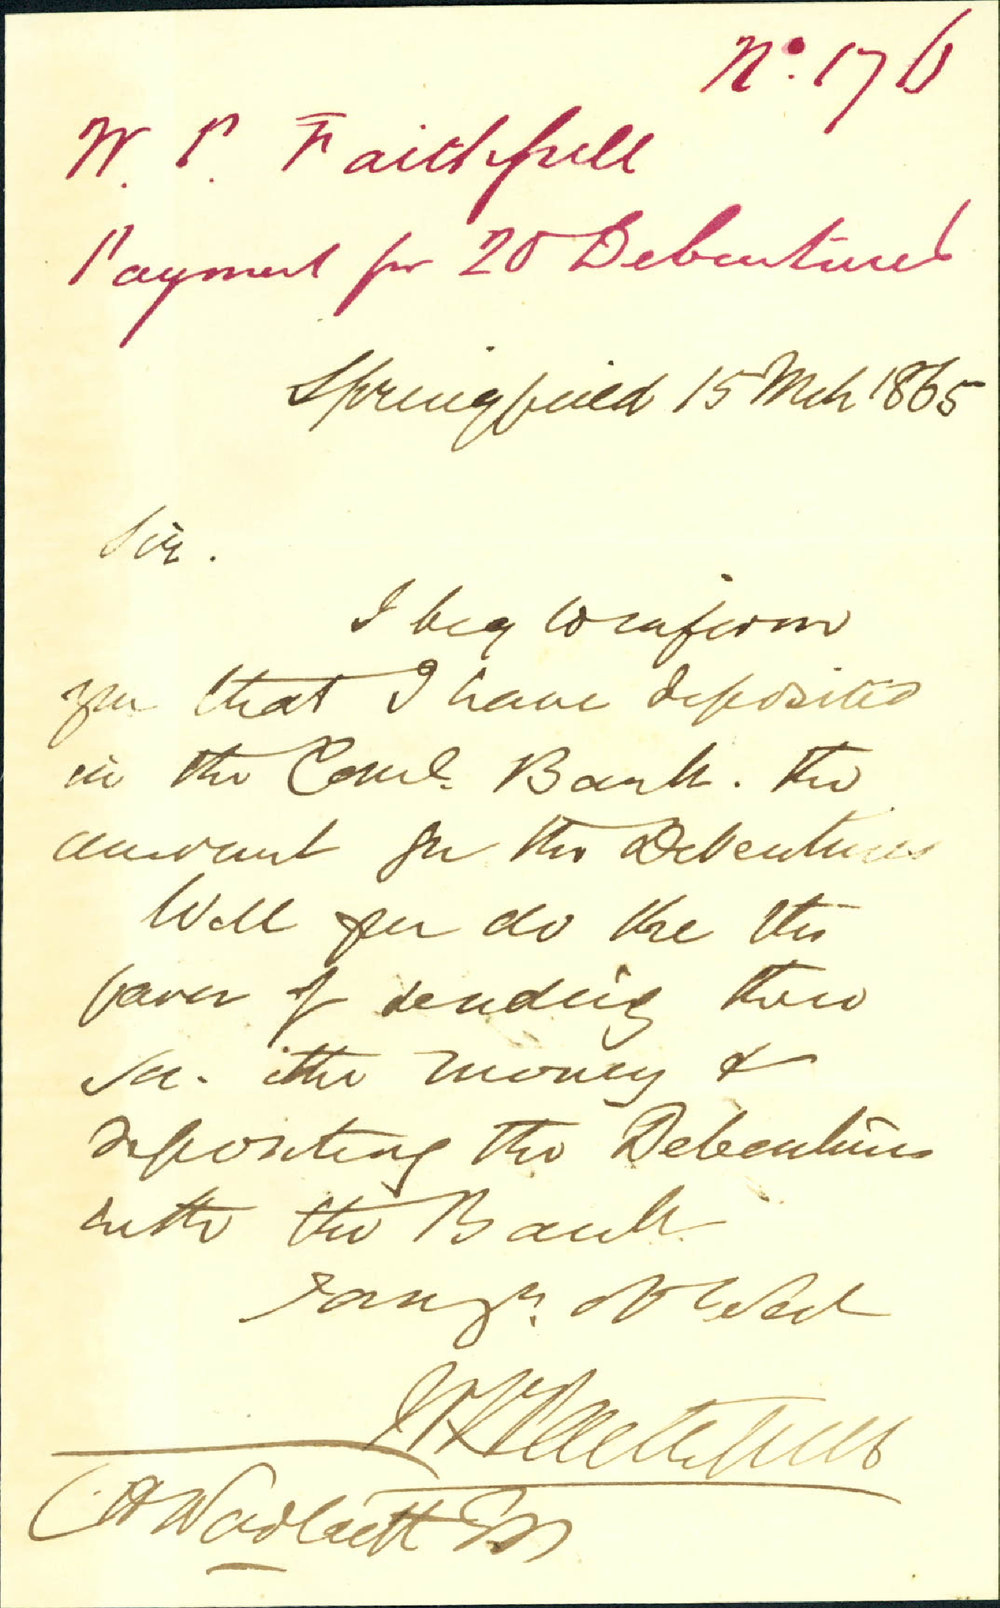 No. 176
W. P. Faithfull
Payment for 20 Debentures
Springfield 15 Mch 1865
Sir.
I beg to inform
you that I have deposited
in the Coml. Bank. the
amount for the Debentures
Will you do me the
favor of sending them
the money &
depositing the Debentures
with the Bank
I am yr. Obt Servt
W P Faithfull